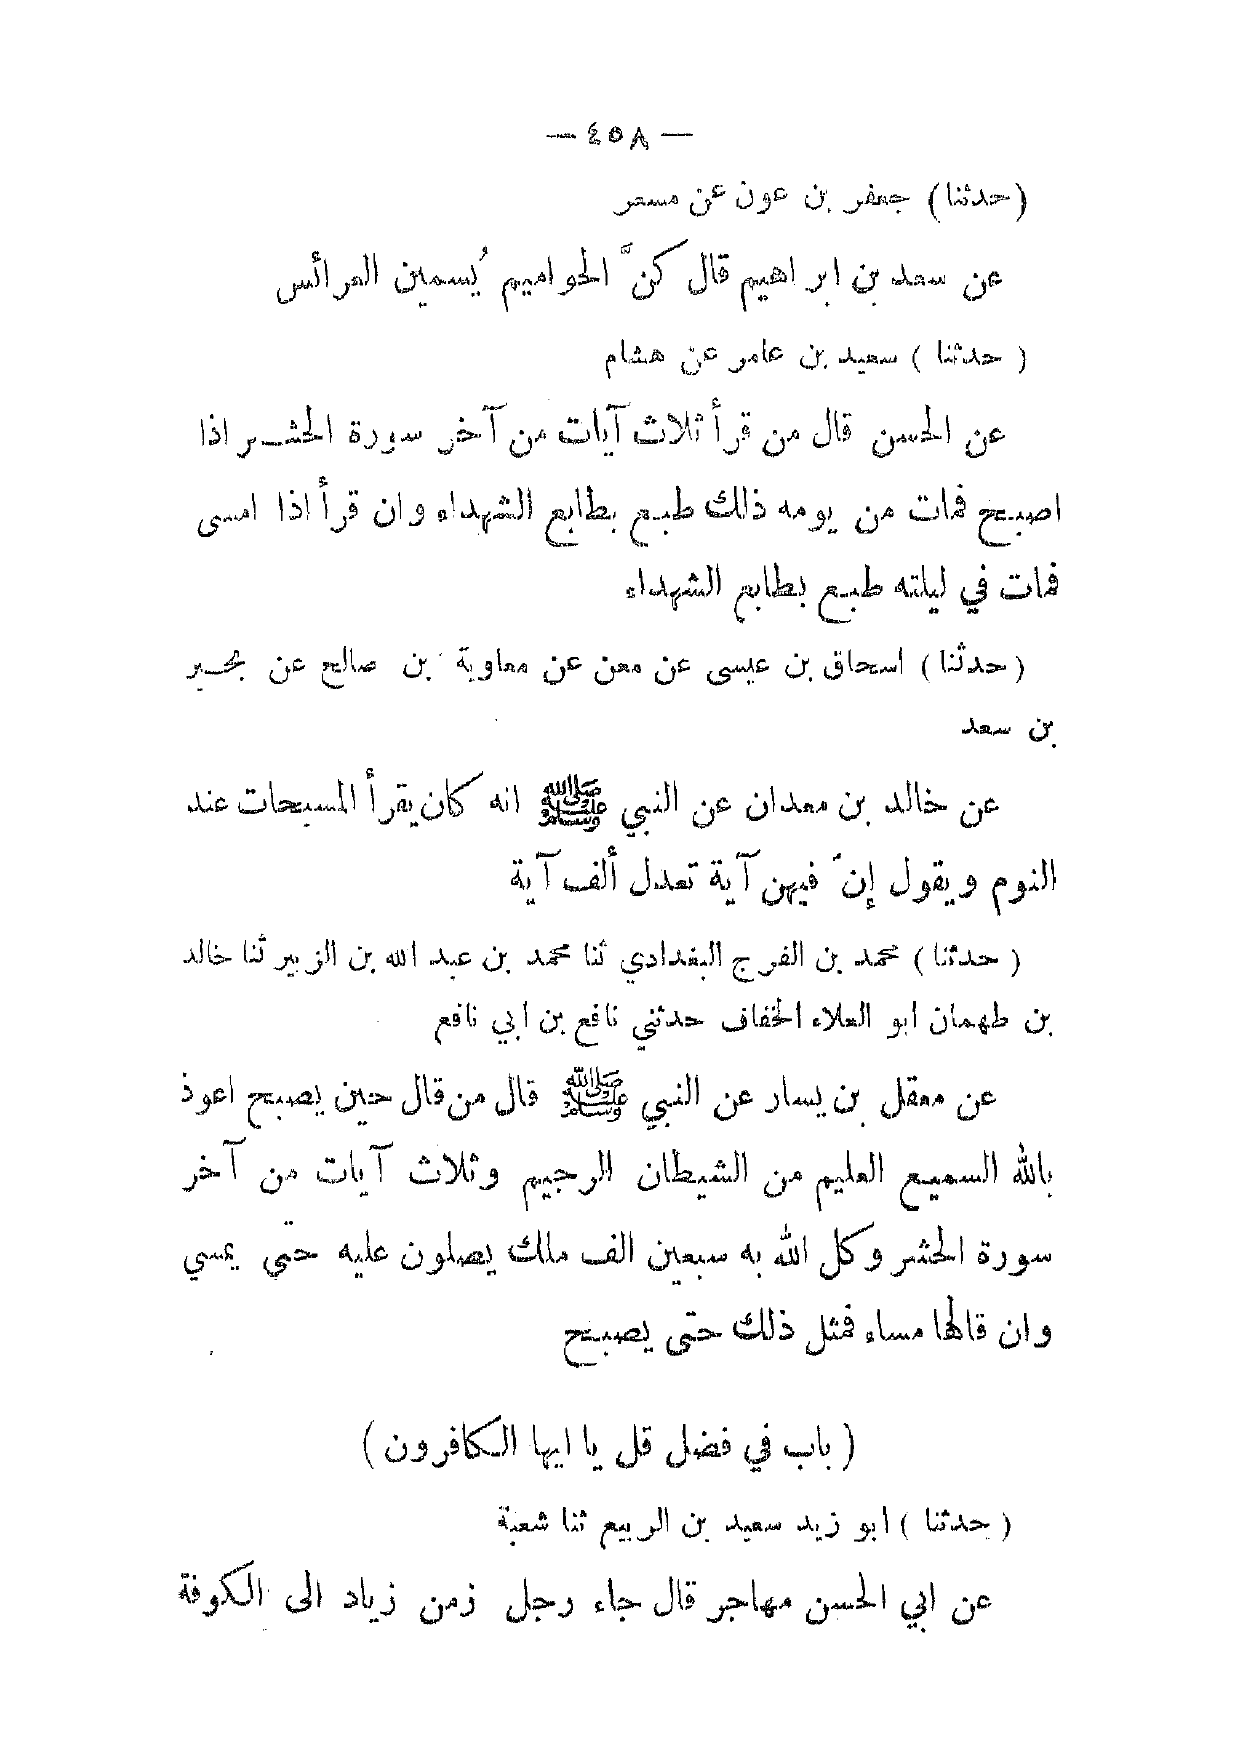 — ٤٥٨ —
(حدثنا) جعفر بن عون عن مسعر
عن سعد بن ابراهيم قال كنَّ الحواميم يُسمين العرائس
( حدثنا ) سعيد بن عامر عن هشام
عن الحسن قال من قرأ ثلاث آيات من آخر سورة الحشر اذا
اصبح فمات من يومه ذلك طبع بطابع الشهداء وان قرأ اذا امسى
فمات في ليلته طبع بطابع الشهداء
( حدثنا ) اسحاق بن عيسى عن معن عن معاوية بن صالح عن بحير
بن سعد
عن خالد بن معدان عن النبي ﷺ انه كان يقرأ المسبحات عند
النوم ويقول إنّ فيهن آية تعدل ألف آية
( حدثنا ) محمد بن الفرج البغدادي ثنا محمد بن عبد الله بن الزبير ثنا خالد
بن طهمان ابو العلاء الخفاف حدثني نافع بن ابي نافع
عن معقل بن يسار عن النبي ﷺ قال من قال حين يصبح اعوذ
بالله السميع العليم من الشيطان الرجيم وثلاث آيات من آخر
سورة الحشر وكل الله به سبعين الف ملك يصلون عليه حتى يمسي
وان قالها مساء فمثل ذلك حتى يصبح
( باب في فضل قل يا ايها الكافرون )
( حدثنا ) ابو زيد سعيد بن الربيع ثنا شعبة
عن ابي الحسن مهاجر قال جاء رجل زمن زياد الى الكوفة